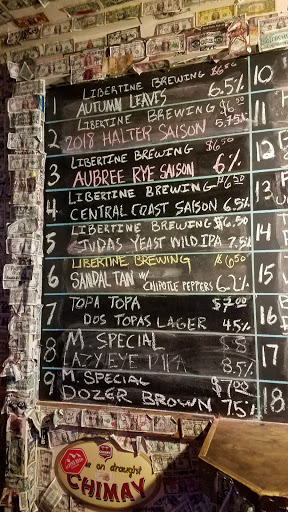 1 LIBERTINE BREWING $6.50
AUTUMN LEAVES 6.5%
2 LIBERTINE BREWING $6.50
2018 HALTER SAISON 5.75%
3 LIBERTINE BREWING $6.50
AUBREE RYE SAISON 6%
4 LIBERTINE BREWING $6.50
CENTRAL COAST SAISON 6.5%
5 LIBERTINE BREWING $6.50
JUDAS YEAST WILD IPA 7.5%
6 LIBERTINE BREWING $6.50
SANDAL TAN W/ CHIPOTLE PEPPERS 6.2%
7 TOPA TOPA $7.00
DOS TOPAS LAGER 4.5%
8 M. SPECIAL $8
LAZY EYE DIPA 8.5%
9 M. SPECIAL $7.00
DOZER BROWN 7.5%
10
11
12
13
14
15
16
17
18
on draught
CHIMAY